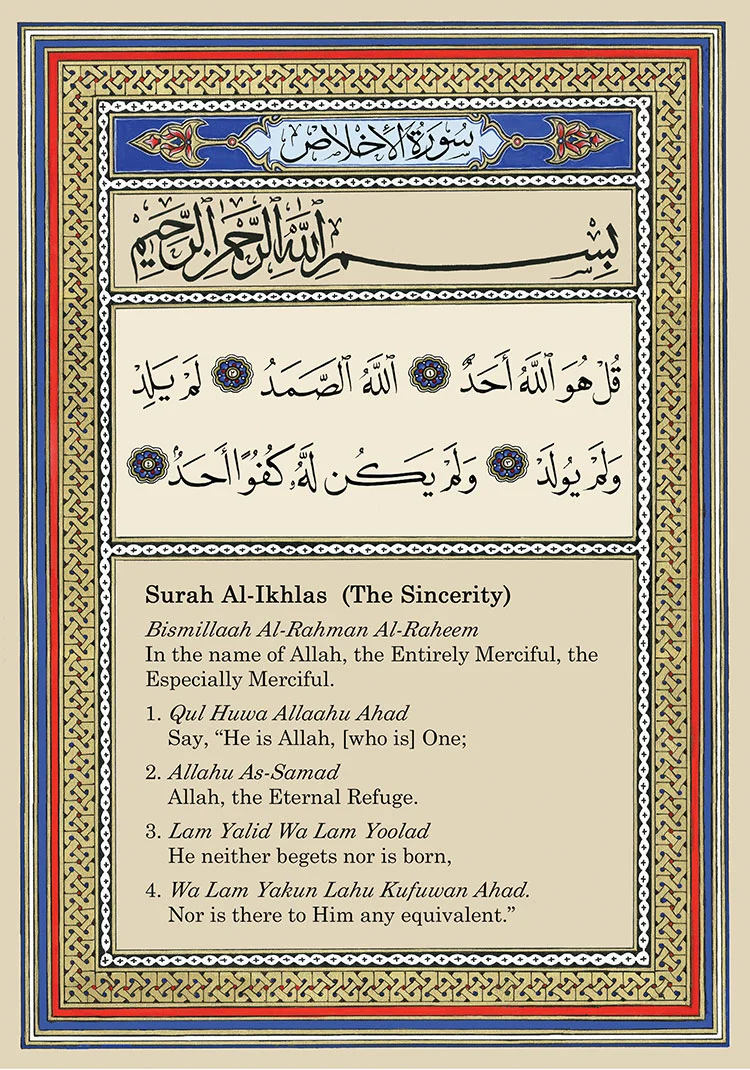 سُورَةُ الْإِخْلَاصِ
بِسْمِ اللَّهِ الرَّحْمَٰنِ الرَّحِيمِ
قُلْ هُوَ ٱللَّهُ أَحَدٌ ١ ٱللَّهُ ٱلصَّمَدُ ٢ لَمْ يَلِدْ
وَلَمْ يُولَدْ ٣ وَلَمْ يَكُن لَّهُۥ كُفُوًا أَحَدٌۢ ٤
Surah Al-Ikhlas (The Sincerity)
Bismillaah Al-Rahman Al-Raheem
In the name of Allah, the Entirely Merciful, the
Especially Merciful.
1. Qul Huwa Allaahu Ahad
Say, “He is Allah, [who is] One;
2. Allahu As-Samad
Allah, the Eternal Refuge.
3. Lam Yalid Wa Lam Yoolad
He neither begets nor is born,
4. Wa Lam Yakun Lahu Kufuwan Ahad.
Nor is there to Him any equivalent.”